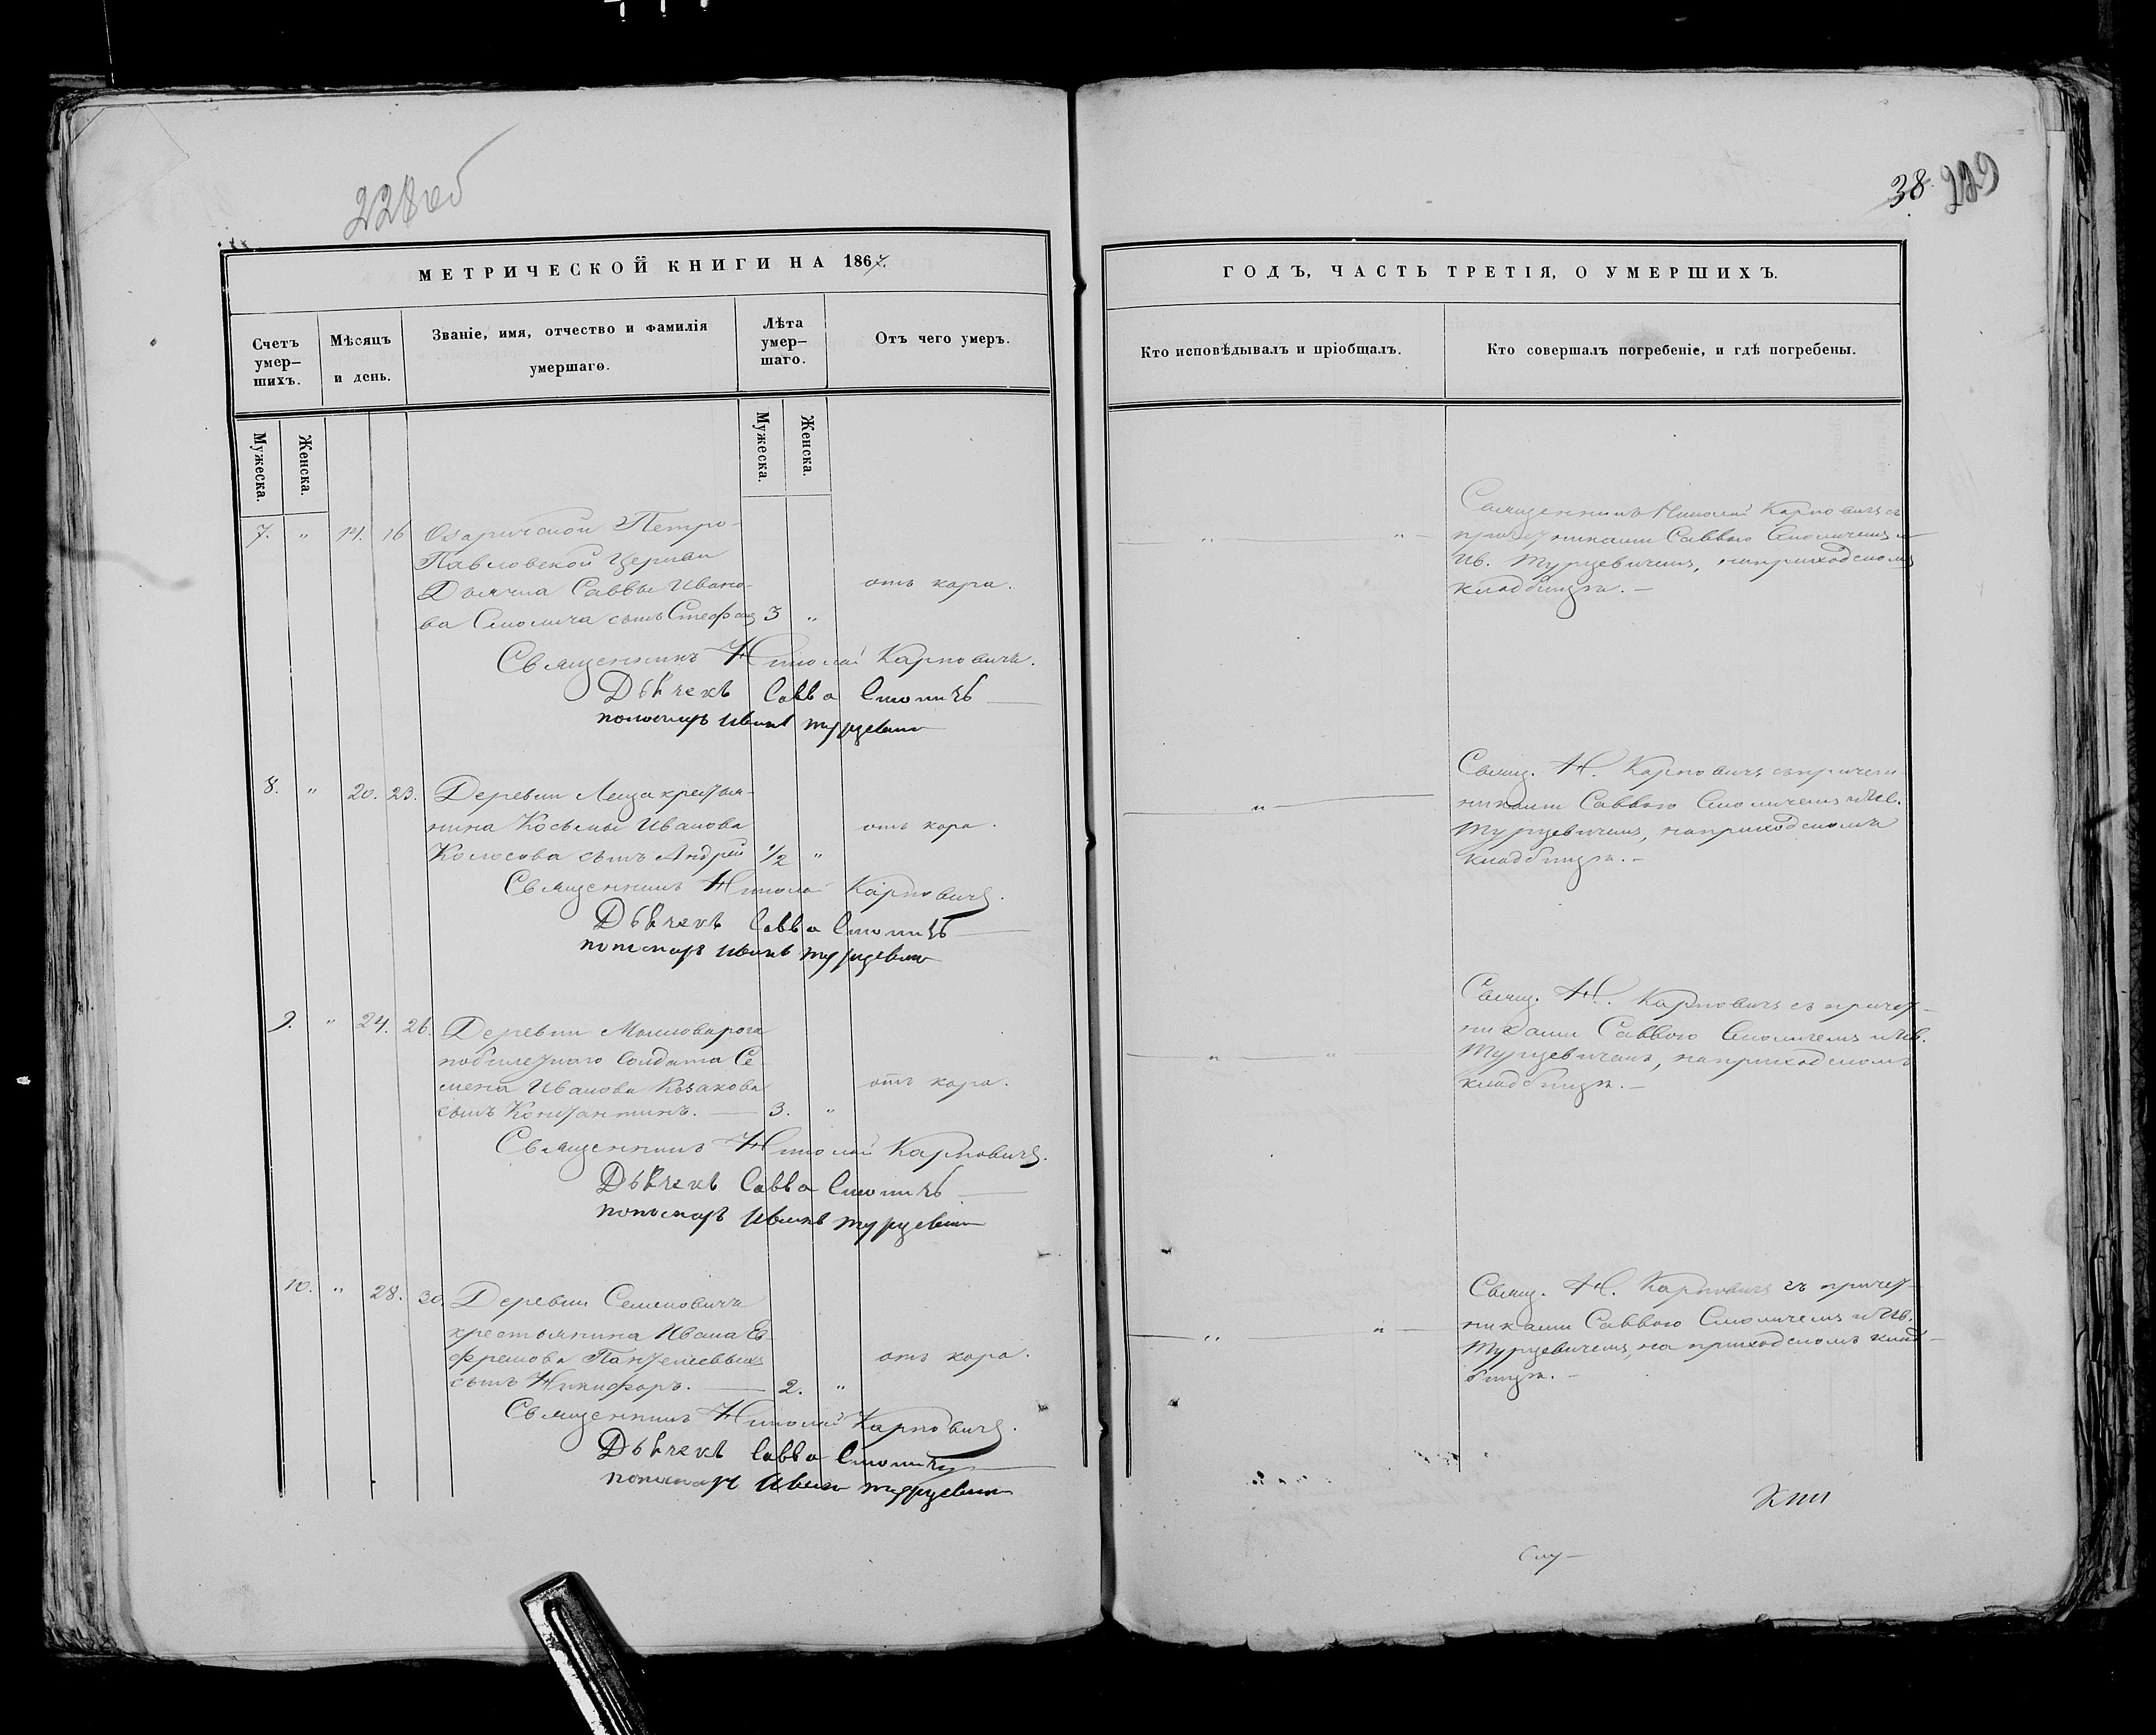 228 об
МЕТРИЧЕСКОЙ КНИГИ НА 1867.
Счетъ умер–шихъ.
Мѣсяцъ и день.
Званіе, имя, отчество и фамилія умершаго.
Лѣта умер–шаго.
Отъ чего умеръ.
Мужеска.
Женска.
Мужеска.
Женска.
7. „ 14. 16 Озаричской Петро-
Павловской церкви
Дьячка Саввы Ивано-
ва Смолича сынъ Стефанъ 3 „
отъ кора.
Священникъ Николай Карповичъ.
Дьячекъ Савва Смоличъ
пономаръ Иванъ Турцевич
8. „ 20. 23. Деревни Леща крестья-
нина Косьмы Иванова
Колосова сынъ Андрей 1/2 „
отъ кора.
Священникъ Николай Карповичъ.
Дьячекъ Савва Смоличъ
пономаръ Иванъ Турцевич
9. „ 24. 26. Деревни
побилетнаго Солдата Се-
мена Иванова Казакова
сынъ Константинъ. — 3. „
отъ кора.
Священникъ Николай Карповичъ.
Дьячекъ Савва Смоличъ
пономаръ Иванъ Турцевич
10. „ 28. 30. Деревни Семеновича
крестьянина Ивана Еф-
фремова
сынъ Никифоръ. — 2. „
отъ кора.
Священникъ Николай Карповичъ.
Дьячекъ Савва Смоличъ
пономаръ Иванъ Турцевич
38. 229
ГОДЪ, ЧАСТЬ ТРЕТІЯ, О УМЕРШИХЪ.
Кто исповѣдывалъ и пріобщалъ.
Кто совершалъ погребеніе, и гдѣ погребены.
„ „
Священникъ Николай Карповичъ съ
причетниками Саввою Смоличемъ и
Ив. Турцевичемъ, на приходскомъ
кладбищѣ. —
„
Свящ. Н. Карповичъ съ причет-
никами Саввою Смоличемъ и Ив.
Турцевичемъ, на приходскомъ
кладбищѣ. —
„ „
Свящ. Н. Карповичъ съ причет-
никами Саввою Смоличемъ и Ив.
Турцевичемъ, на приходскомъ
кладбищѣ. —
„ „
Свящ. Н. Карповичъ съ причет-
никами Саввою Смоличемъ и Ив.
Турцевичемъ, на приходскомъ клад-
бищѣ. —